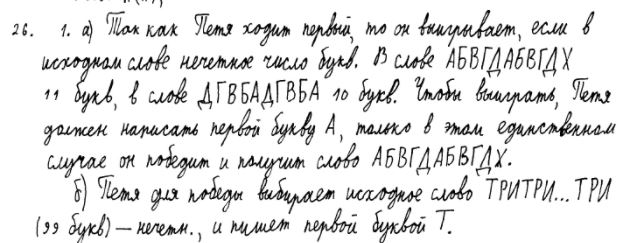 26. 1. а) Так как Петя ходит первый, то он выигрывает, если в
исходном слове нечетное число букв. В слове АБВГДАБВГДХ
11 букв, в слове ДГВБАДГВБА 10 букв. Чтобы выиграть, Петя
должен написать первой букву А, только в этом единственном
случае он победит и получит слово АБВГДАБВГДХ.
б) Петя для победы выбирает исходное слово ТРИТРИ... ТРИ
(99 букв) — нечетн., и пишет первой буквой Т.